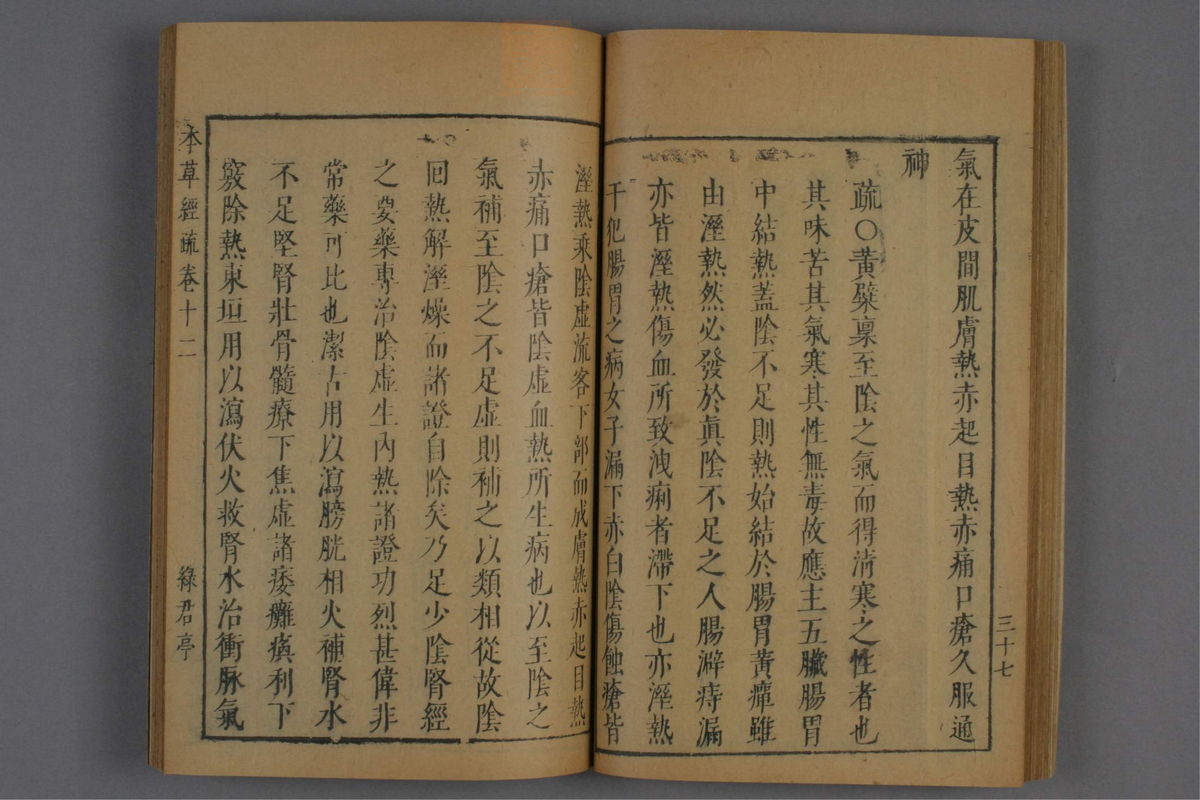 三十七
氣在皮間肌膚熱赤起目熱赤痛口瘡久服通
神
疏〇黃蘗禀至陰之氣而得清寒之性者也
其味苦其氣寒其性無毒故應主五臟腸胃
中結熱蓋陰不足則熱始結於腸胃黃癉雖
由溼熱然必發於眞陰不足之人腸澼痔漏
亦皆溼熱傷血所致洩痢者滯下也亦溼熱
干犯腸胃之病女子漏下赤白陰傷蝕瘡皆
溼熱乘陰虛流客下部而成膚熱赤起目熱
赤痛口瘡皆陰虛血熱所生病也以至陰之
氣補至陰之不足虛則補之以類相從故陰
回熱解溼燥而諸證自除矣乃足少陰腎經
之要藥專治陰虛生內熱諸證功烈甚偉非
常藥可比也潔古用以瀉膀胱相火補腎水
不足堅腎壯骨髓療下焦虛諸痿癱瘓利下
竅除熱東垣用以瀉伏火救腎水治衝脉氣
本草經疏卷十二
綠君亭